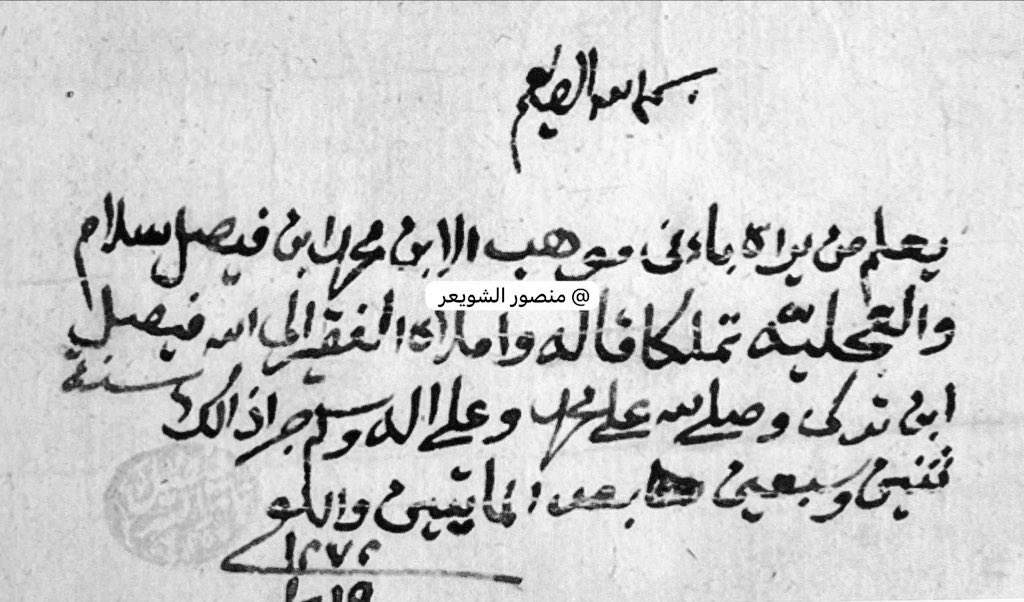 بسم الله الرحمن الرحيم
يعلم من يراه باءنى موهب الابن محمد ابن فيصل سلام
@ منصور الشويعر
تملكا قاله واملاه الفقير الى الله فيصل
ابن تركى وصلى الله على محمد وعلى اله وسلم جرا ذالك سنة
ثنين وسبعين بعد المايتين والالف
١٢٧٢